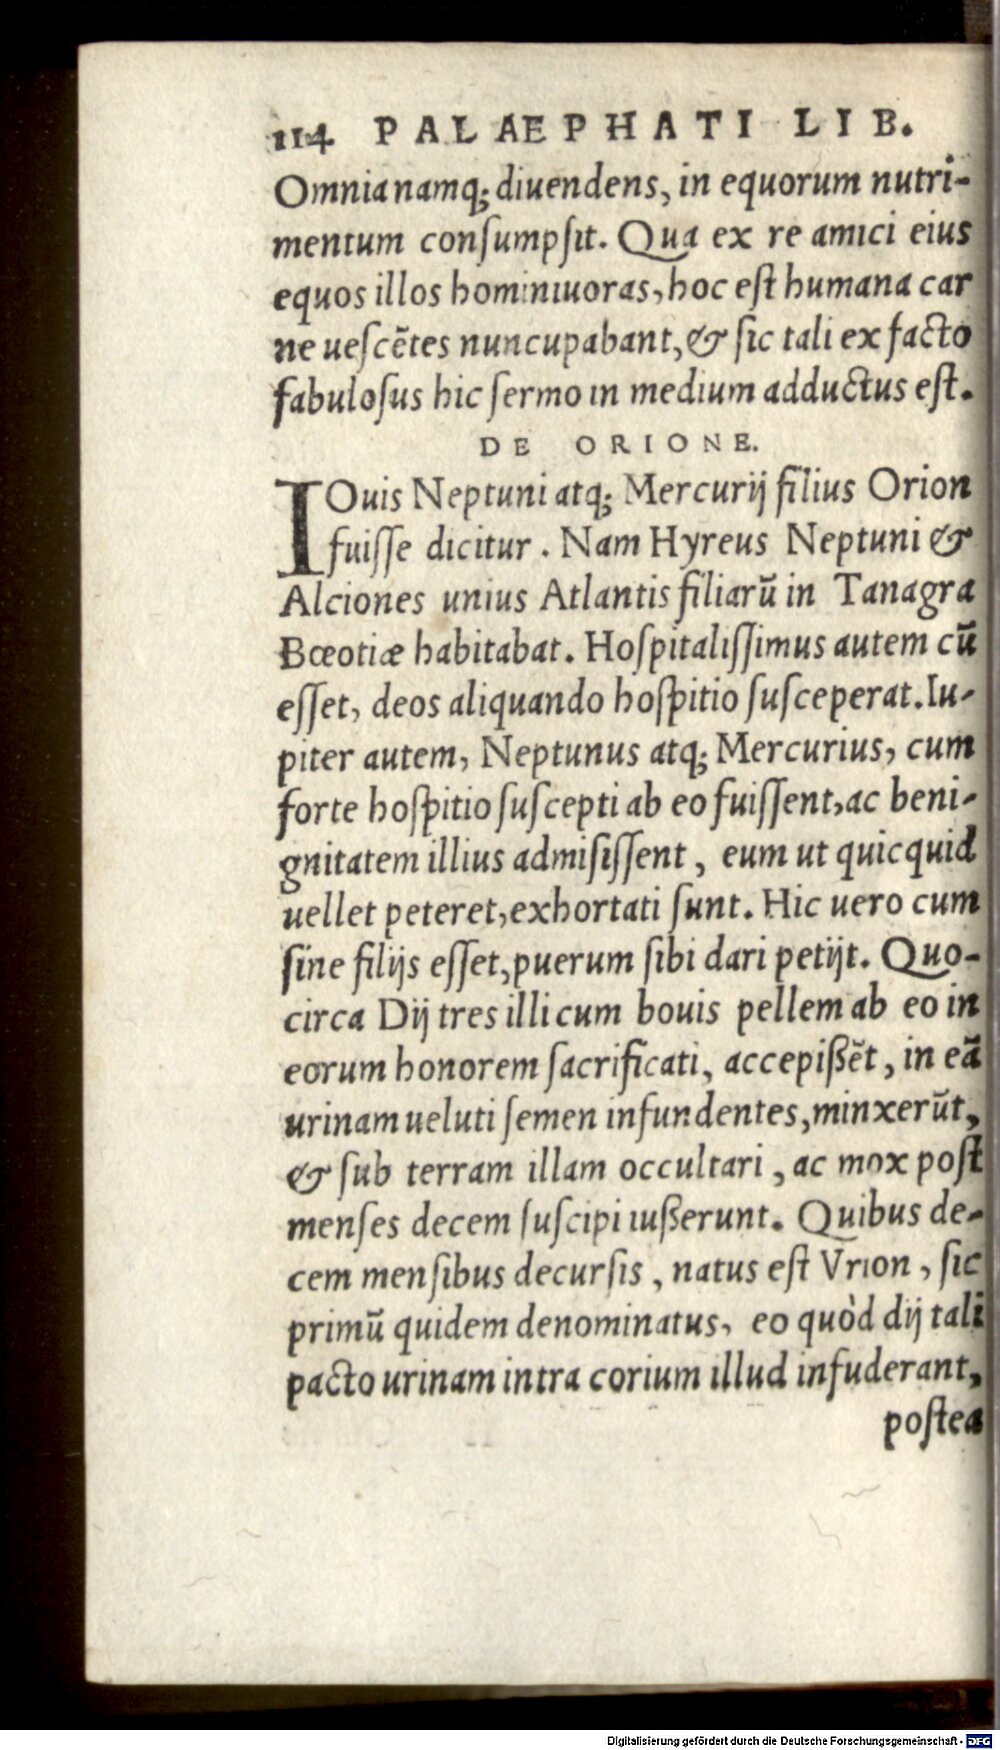 114 PALAEPHATI LIB.
Omnia namq; diuendens, in equorum nutri-
mentum conſumpſit. Qua ex re amici eius
equos illos hominiuoras, hoc eſt humana car
ne ueſcẽtes nuncupabant, & ſic tali ex facto
fabuloſus hic ſermo in medium adductus eſt.
DE ORIONE.
IOuis Neptuni atq; Mercurij filius Orion
fuiſſe dicitur. Nam Hyreus Neptuni &
Alciones unius Atlantis filiarũ in Tanagra
Bœotiæ habitabat. Hoſpitaliſſimus autem cũ
eſſet, deos aliquando hoſpitio ſuſceperat. Iu-
piter autem, Neptunus atq; Mercurius, cum
forte hoſpitio ſuſcepti ab eo fuiſſent, ac beni-
gnitatem illius admiſiſſent, eum ut quicquid
uellet peteret, exhortati ſunt. Hic uero cum
ſine filijs eſſet, puerum ſibi dari petijt. Quo-
circa Dij tres illi cum bouis pellem ab eo in
eorum honorem ſacrificati, accepißẽt, in eã
urinam ueluti ſemen infundentes, minxerũt,
& ſub terram illam occultari, ac mox poſt
menſes decem ſuſcipi iußerunt. Quibus de-
cem menſibus decurſis, natus eſt Vrion, ſic
primũ quidem denominatus, eo quòd dij tali
pacto urinam intra corium illud infuderant,
poſtea
Digitalisierung gefördert durch die Deutsche Forschungsgemeinschaft - DFG